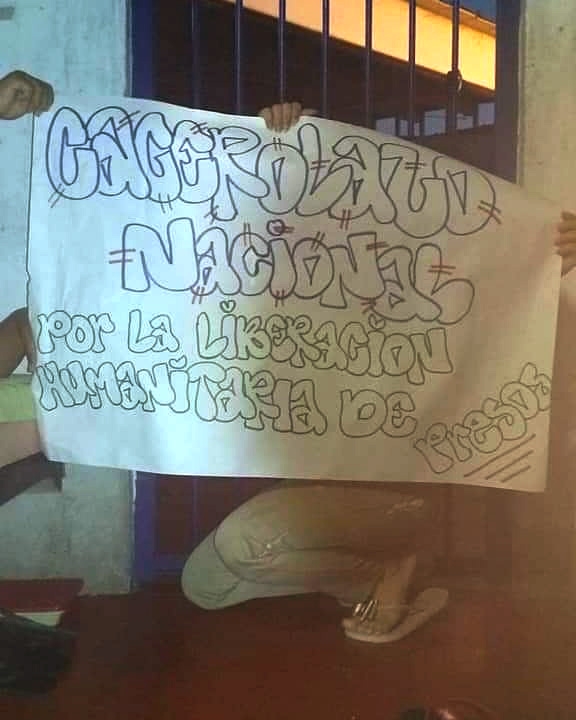 CACEROLAZO
NACIONAL
POR LA LIBERACION
HUMANITARIA DE PRESOS